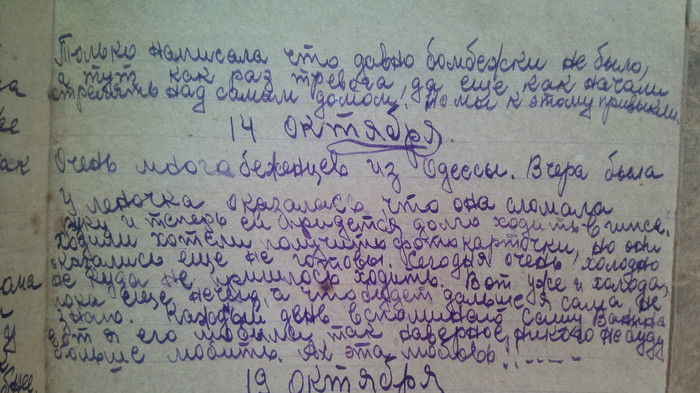 Только написала что давно бомбежки не было,
а тут как раз тревога, да еще как начали
стрелять над самым домом, но мы к этому привыкли.
14 октября.
Очень много беженцев из Одессы. Вчера была
у Леночка оказалась, что она сломала
руку и теперь ей придется долго ходить в гипсе.
Ходили хотели получить фотокарточки, но они
оказались еще не готовы. Сегодня очень холодно
не куда не пришлось ходить. Вот уже и холода,
пока еще нечего а что будет дальше я сама не
знаю. Каждый день вспоминаю Сашу
вот я его любила так наверное никого не буду
больше любить. Ах эта любовь!!-----
19 октября